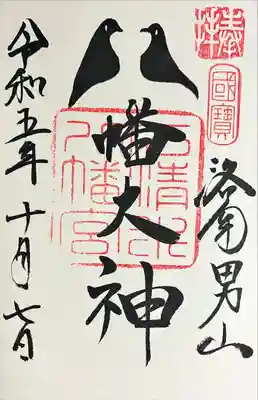 奉拝
國寶
洛南男山
幡大神
石清水
八幡宮
令和五年十月七日